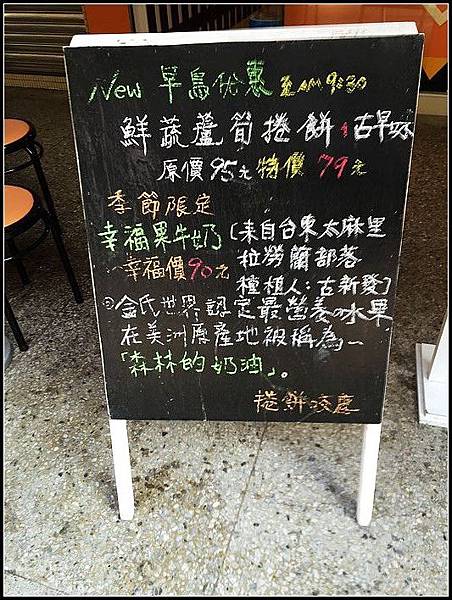 New 早鳥优惠 至AM9:30
鮮蔬蘆筍捲餅,古早味
原價95元 特價 79元
季節限定
幸福果牛奶 [來自台東太麻里
幸福價90元 拉勞蘭部落
種植人:古新發]
金氏世界認定最營養の水果
在美洲原產地被稱為~
「森林的奶油」。
捲餅凌慶